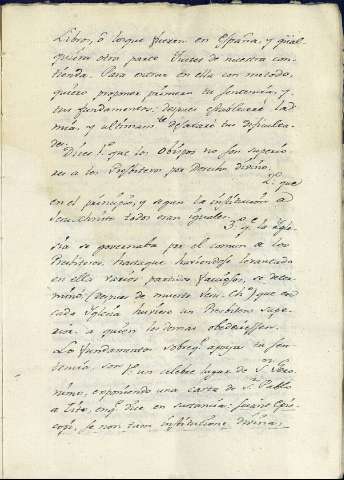 Libro, ô los que fueren en España, y qual
quiera otro parte Jueces de nuestra con
tienda. Para entrar en ella con metodo,
quiero proponer primero tu sentencia, y
tus fundamentos; despues la
mia, y ultimam.te desataré tus dificulta
des.
Dices 1.o que los Obispos no son superio
res a los Presbiteros por Derecho divino.
2.o que
en el principio, y segun la institucion de
Jesu-Christo todos eran iguales.
3.o q. la Igle
sia se governaba por el comun de los
Presbiteros, hasta que haviendose levantado
en ella varios partidos, se deter
minó (despues de muerto Jesu-Ch.o) que en
cada Iglesia huviese un Presbitero Supe
rior a quien los demas obedeciessen.
Los fundamentos sobre q. apoyas tu sen
tencia son 1.o un celebre lugar de S.n Gero
nimo, exponiendo una carta de S.n Pablo
a Tito, en q. dice en sustancia: sciant Epis
copi, se non tam institutione divina,